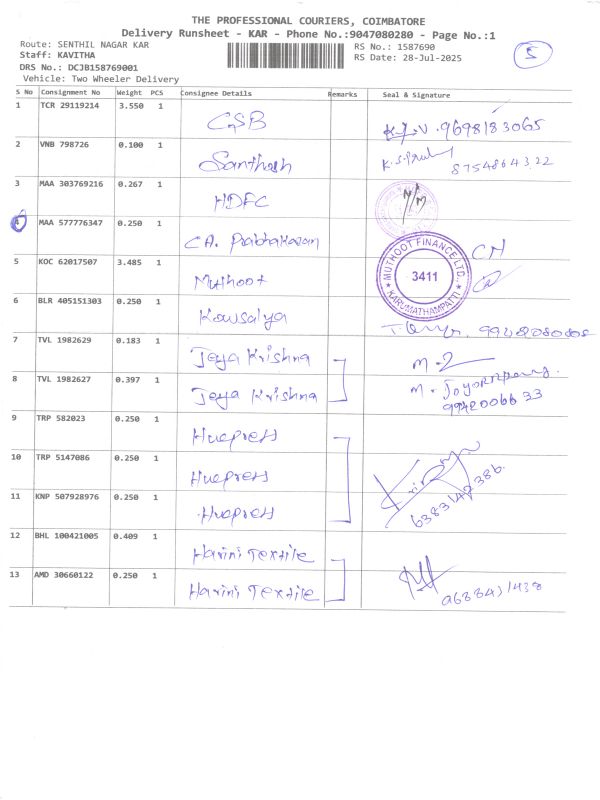 THE PROFESSIONAL COURIERS, COIMBATORE
Delivery Runsheet - KAR - Phone No.:9047080280 - Page No.:1
Route: SENTHIL NAGAR KAR
RS No.: 1587690
5
Staff: KAVITHA
RS Date: 28-Jul-2025
DRS No.: DCJB158769001
Vehicle: Two Wheeler Delivery
S No Consignment No Weight PCS Consignee Details Remarks Seal & Signature
1 TCR 29119214 3.550 1 CSB 9698183065
2 VNB 798726 0.100 1 Santhosh 8754864322
3 MAA 303769216 0.267 1 HDFC N/M
4 MAA 577776347 0.250 1 CA. Prabhakaran
5 KOC 62017507 3.485 1 Muthoot
MUTHOOT FINANCE LTD.
3411
KARUMATHAMPATTI
6 BLR 405151303 0.250 1 Kowsalya
7 TVL 1982629 0.183 1 Jeya Krishna M-2
8 TVL 1982627 0.397 1 Jeya Krishna
9942006633
9 TRP 582023 0.250 1
10 TRP 5147086 0.250 1
6383142386
11 KNP 507928976 0.250 1
12 BHL 100421005 0.409 1 Harini Textile
13 AMD 30660122 0.250 1 Harini Textile